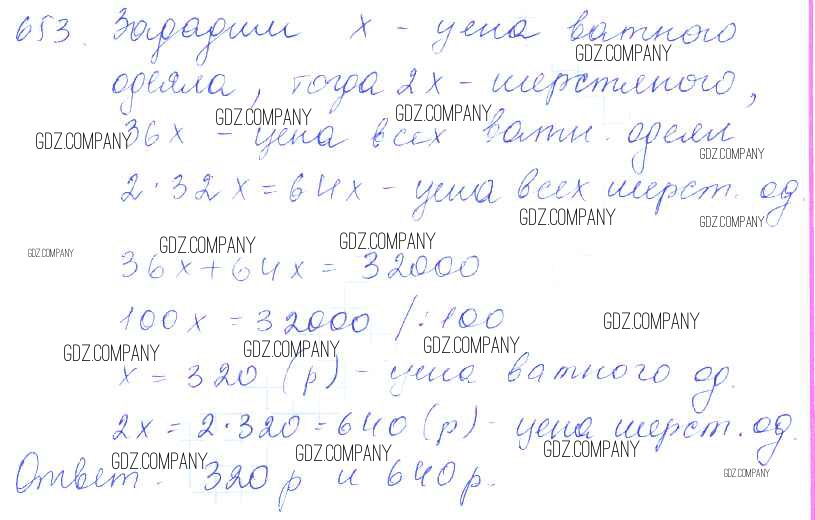 653. Зададим х - цена ватного
GDZ.COMPANY
одеяла, тогда 2х - шерстяного,
GDZ.COMPANY GDZ.COMPANY
GDZ.COMPANY 36х - цена всех ватн. одеял
GDZ.COMPANY
2·32х = 64х - цена всех шерст. од.
GDZ.COMPANY GDZ.COMPANY
GDZ.COMPANY GDZ.COMPANY GDZ.COMPANY
36х + 64х = 32000
100х = 32000 /:100 GDZ.COMPANY
GDZ.COMPANY GDZ.COMPANY GDZ.COMPANY
х = 320 (р) - цена ватного од.
2х = 2·320 = 640 (р) - цена шерст. од.
GDZ.COMPANY GDZ.COMPANY GDZ.COMPANY
Ответ. 320 р и 640 р. GDZ.COMPANY